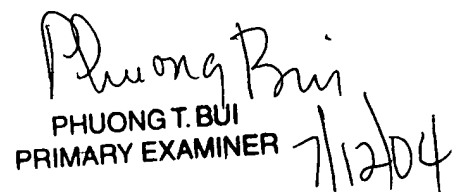 Phuong Bui
PHUONG T. BUI
PRIMARY EXAMINER
7/12/04